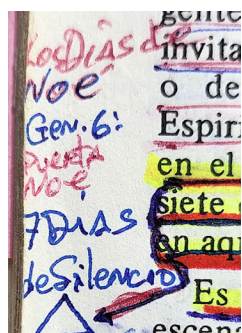 Los DíAS de
NOé
Gen. 6:
PUERTA
NOé
7 DIAS
de Silencio
gente
invita
o de
Espiri
en el
siete
en aqu
Es
escen